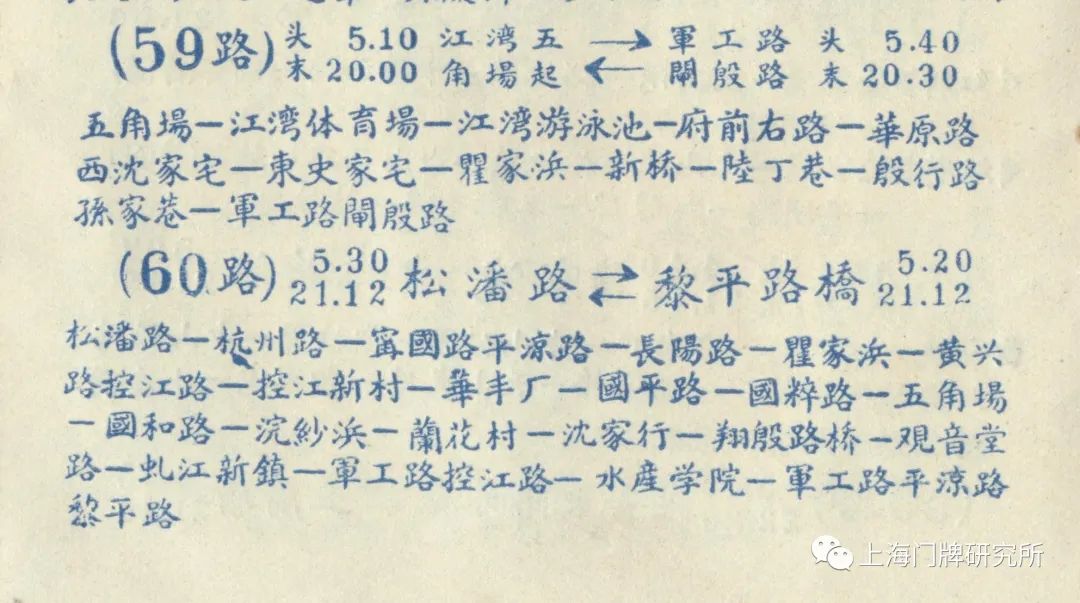 (59路) 头 5.10 江湾五 → 軍工路 头 5.40
末 20.00 角場起 ← 閘殷路 末 20.30
五角場—江湾体育場—江湾游泳池—府前右路—華原路
西沈家宅—東史家宅—瞿家浜—新桥—陸丁巷—殷行路
孫家巷—軍工路閘殷路
(60路) 5.30 松潘路 ⇄ 黎平路橋 5.20
21.12 21.12
松潘路—杭州路—甯國路平凉路—長陽路—瞿家浜—黄兴
路控江路—控江新村—華丰厂—國平路—國粹路—五角場
—國和路—浣紗浜—蘭花村—沈家行—翔殷路桥—观音堂
路—虬江新鎮—軍工路控江路—水産学院—軍工路平凉路
黎平路
上海门牌研究所